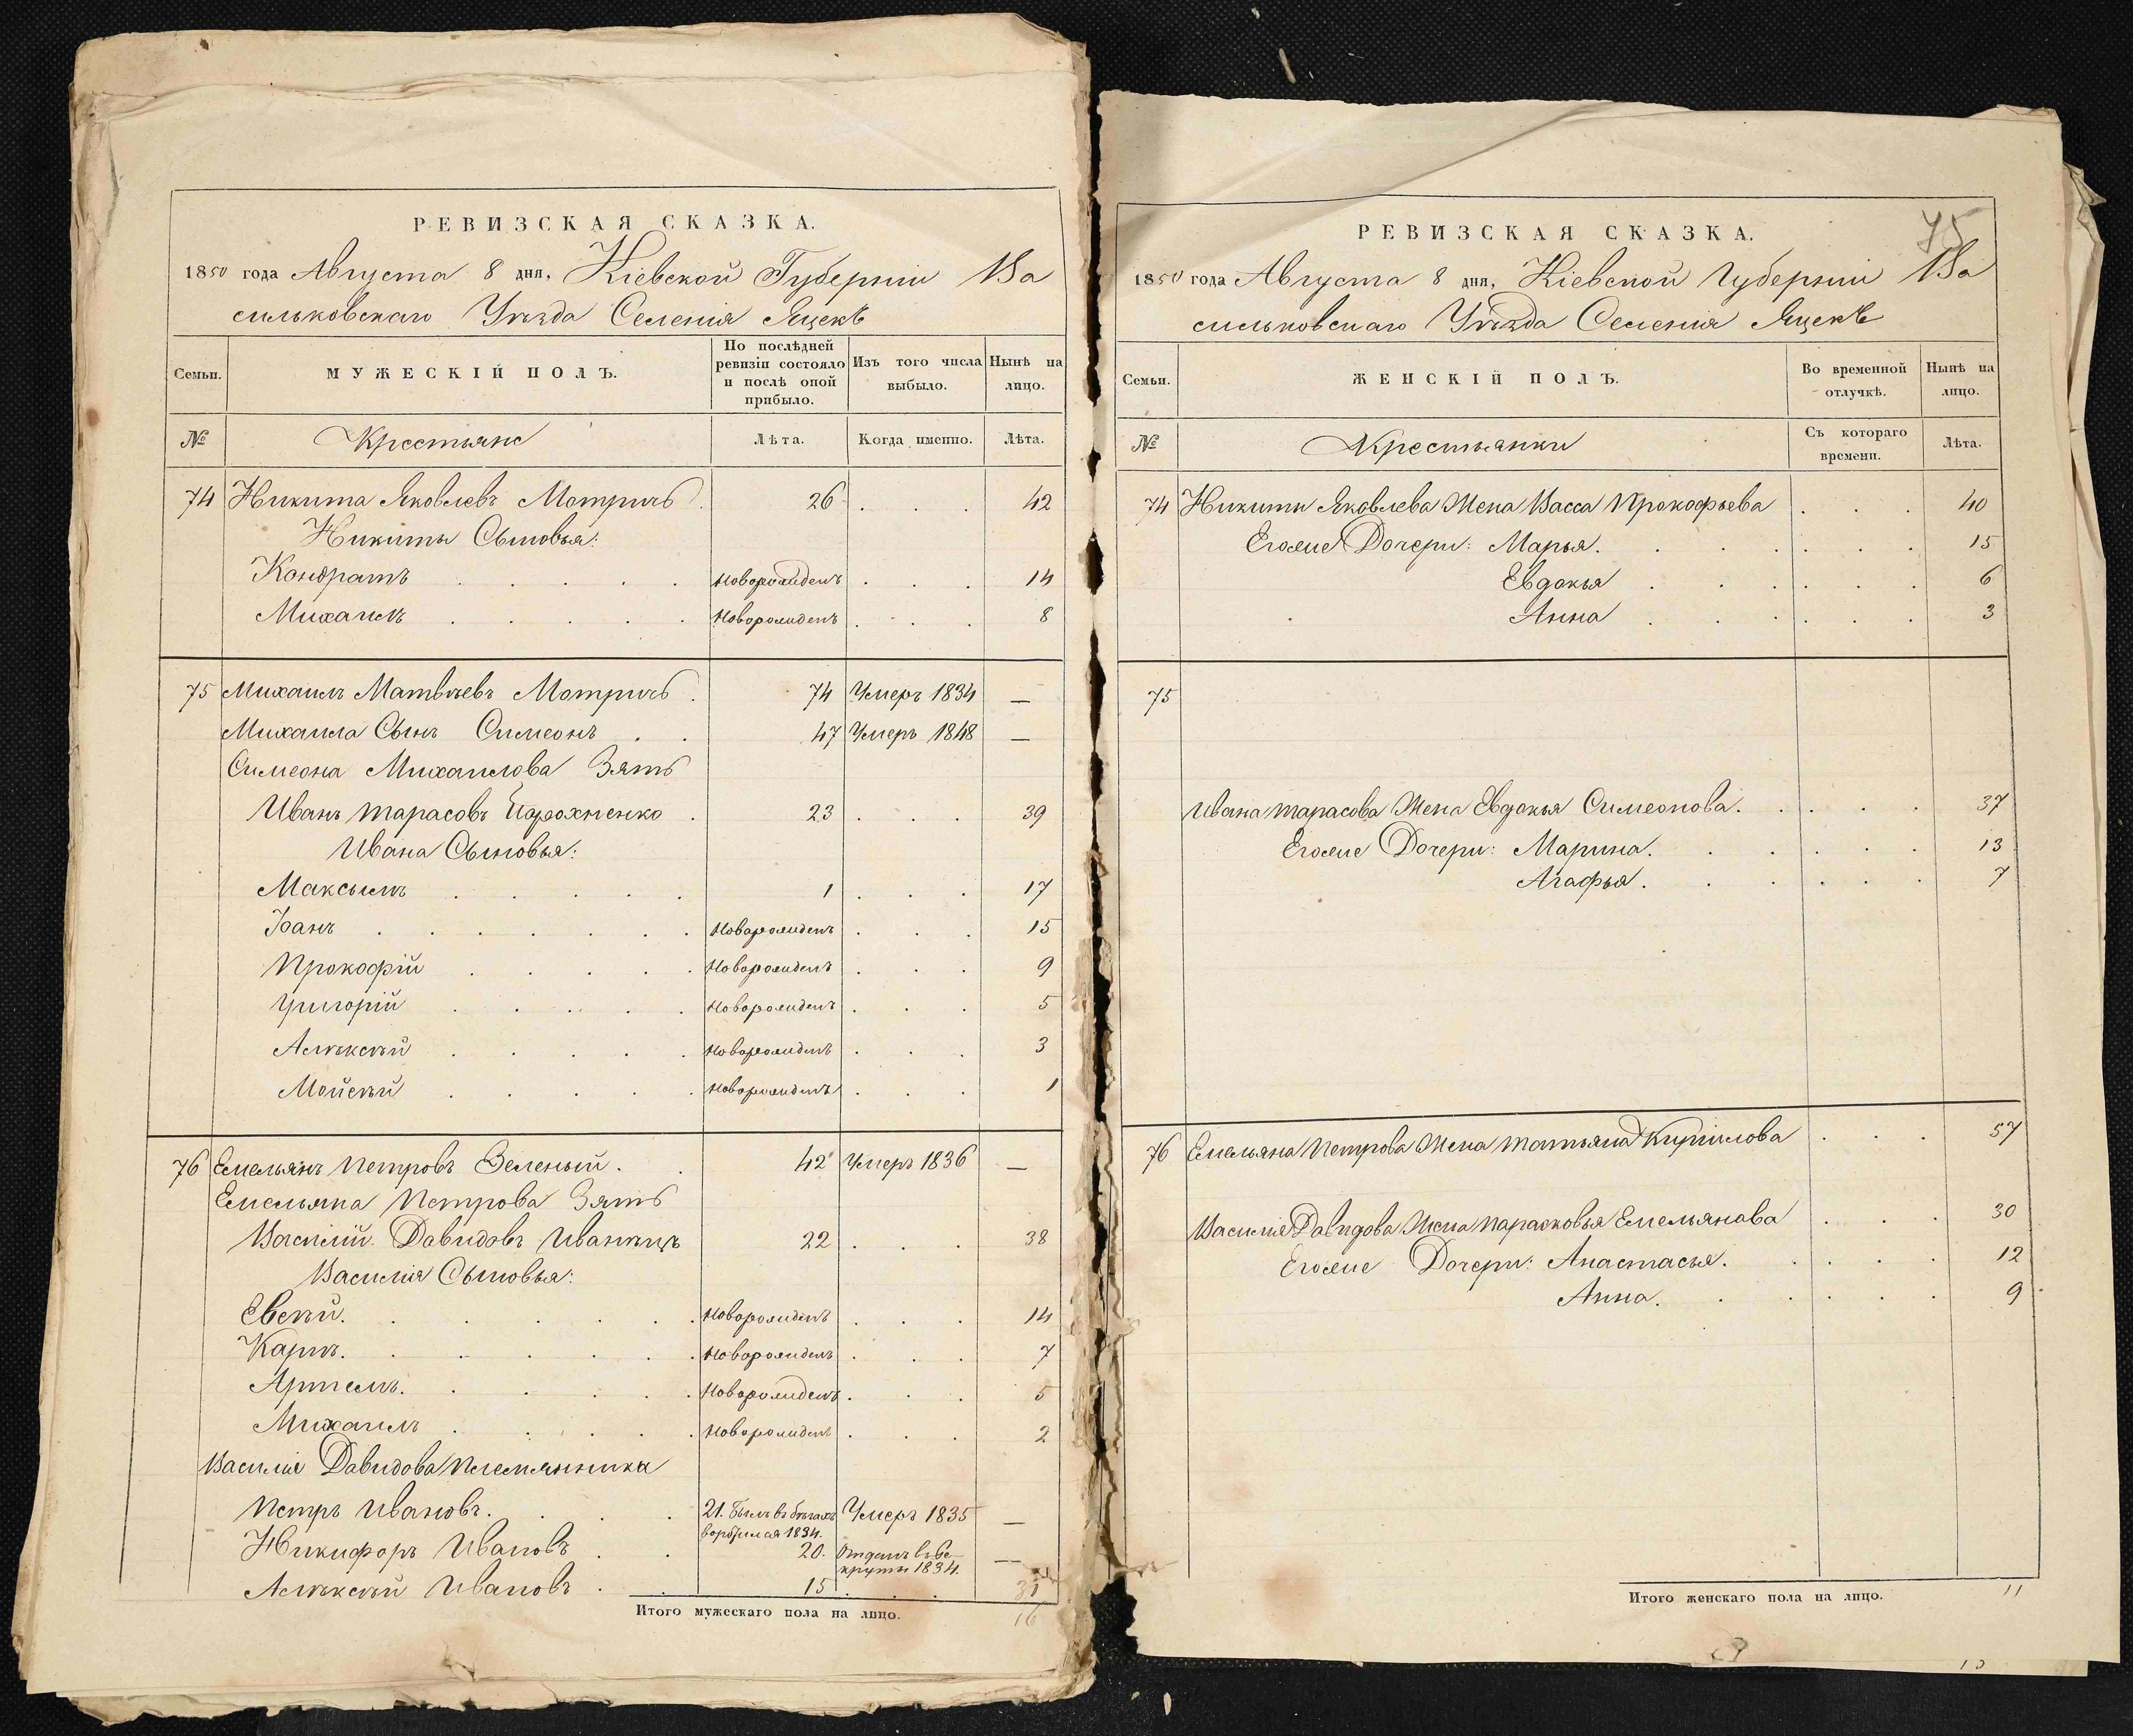 РЕВИЗСКАЯ СКАЗКА.
1850 года Августа 8 дня, Кіевской Губерніи Ва
сильковскаго Уѣзда Селенія Яцекъ
Семьи.
МУЖЕСКІЙ ПОЛЪ.
По послѣдней ревизіи состояло и послѣ оной прибыло.
Изъ того числа выбыло.
Нынѣ на лицо.
№ Крестьяне Лѣта. Когда именно. Лѣта.
74 Никита Яковлевъ Мотричъ . 26 . . . 42
Никиты Сыновья:
Кондратъ . . . . . новорожденъ . . . 14
Михаилъ . . . . . новорожденъ . . . 8
75 Михаилъ Матвѣевъ Мотричъ . 74 Умеръ 1834 —
Михаила Сынъ Симеонъ . . 47 Умеръ 1848 —
Симеона Михаилова Зять
Иванъ Тарасовъ Парохненко . 23 . . . 39
Ивана Сыновья:
Максымъ . . . . . 1 . . . 17
Іоанъ . . . . . . . новорожденъ . . . 15
Прокофій . . . . . новорожденъ . . . 9
Григорій . . . . . новорожденъ . . . 5
Алѣксѣй . . . . . новорожденъ . . . 3
Мойсѣй . . . . . новорожденъ . . . 1
76 Емельянъ Петровъ Зеленый . . 42 Умеръ 1836 —
Емельяна Петрова Зять
Василій Давидовъ 22 . . . 38
Василія Сыновья:
Евсѣй. . . . . . . новорожденъ . . . 14
Карпъ. . . . . . . новорожденъ . . . 7
Артемъ. . . . . . новорожденъ . . . 5
Михаилъ . . . . . новорожденъ . . . 2
Василія Давидова Племянники
Петръ Ивановъ. . . . 21. Былъ въ бѣгахъ Умеръ 1835 —
1834.
Никифоръ Ивановъ . . 20. Отданъ въ ре-
круты 1834. —
Алѣксѣй Ивановъ . . 15 . . . 31
Итого мужескаго пола на лицо. 16
75
РЕВИЗСКАЯ СКАЗКА.
1850 года Августа 8 дня, Кіевской Губерніи Ва
сильковскаго Уѣзда Селенія Яцекъ
Семьи.
ЖЕНСКІЙ ПОЛЪ.
Во временной отлучкѣ.
Нынѣ на лицо.
№ Крестьянки Съ котораго времени. Лѣта.
74 Никиты Яковлева Жена Васса Прокофьева . . . 40
Егожие Дочери: Марья. . . . . . . 15
Евдокья . . . . . . 6
Анна . . . . . . 3
75
Ивана Тарасова Жена Евдокья Симеонова. . . . . 37
Егожие Дочери: Марина. . . . . . . 13
Агафья. . . . . . 7
76 Емельяна Петрова Жена Татьяна Кирилова . . . 57
Василія Давидова Жена Парасковья Емельянова . . . 30
Егожие Дочери: Анастасья. . . . . 12
Анна. . . . . . 9
Итого женскаго пола на лицо. 11